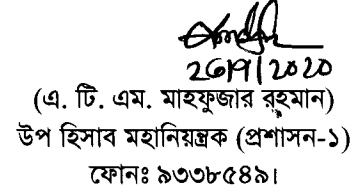 26/9/2020
(এ. টি. এম. মাহফুজার রহমান)
উপ হিসাব মহানিয়ন্ত্রক (প্রশাসন-১)
ফোনঃ ৯৩৩৮৫৪৯।